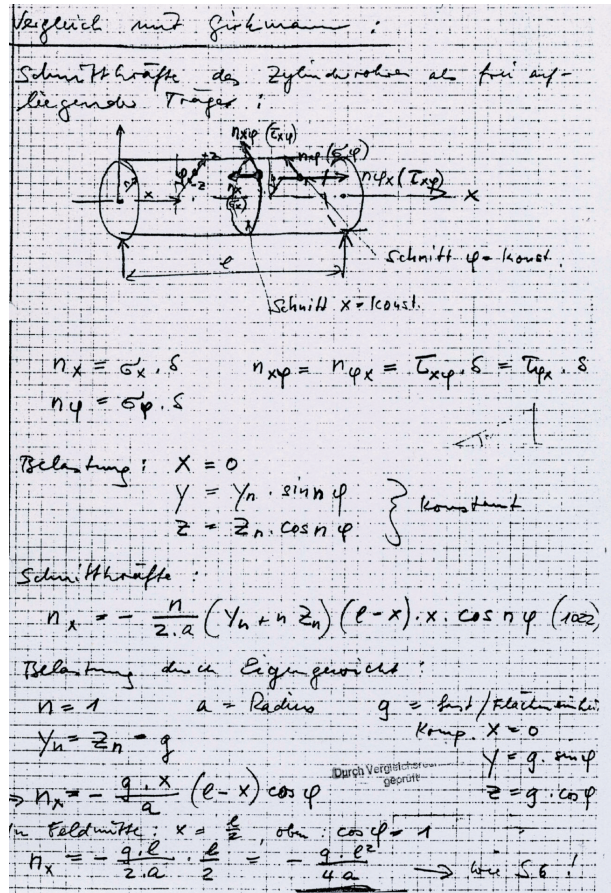 Vergleich mit Girkmann :
Schnittkräfte des Zylinderrohres als frei auf-
liegender Träger :
nxφ (τxφ)
nφ (σφ)
nφx (τxφ)
nx
(σx)
a
φ
z
x
x
Schnitt φ = konst.
ℓ
Schnitt x = konst.
nx = σx . δ nxφ = nφx = τxφ . δ = τφx . δ
nφ = σφ . δ
Belastung : X = 0
Y = Yn . sin n φ
Z = Zn . cos n φ } konstant
Schnittkräfte :
nx = - n/2.a (Yn + n Zn) (ℓ - x) . x . cos n φ (1022)
Belastung durch Eigengewicht :
n = 1 a = Radius g = Last/Flächeneinhei
Komp. X = 0
Yn = Zn = g
Y = g . sin φ
Durch Vergleichsrech
geprüft
Z = g . cos φ
⇒ nx = - g . x/a (ℓ - x) cos φ
In Feldmitte : x = ℓ/2 , oben : cos φ = 1
nx = - g . ℓ/2 . a . ℓ/2 = - g ℓ²/4 a → wie S. 6 !